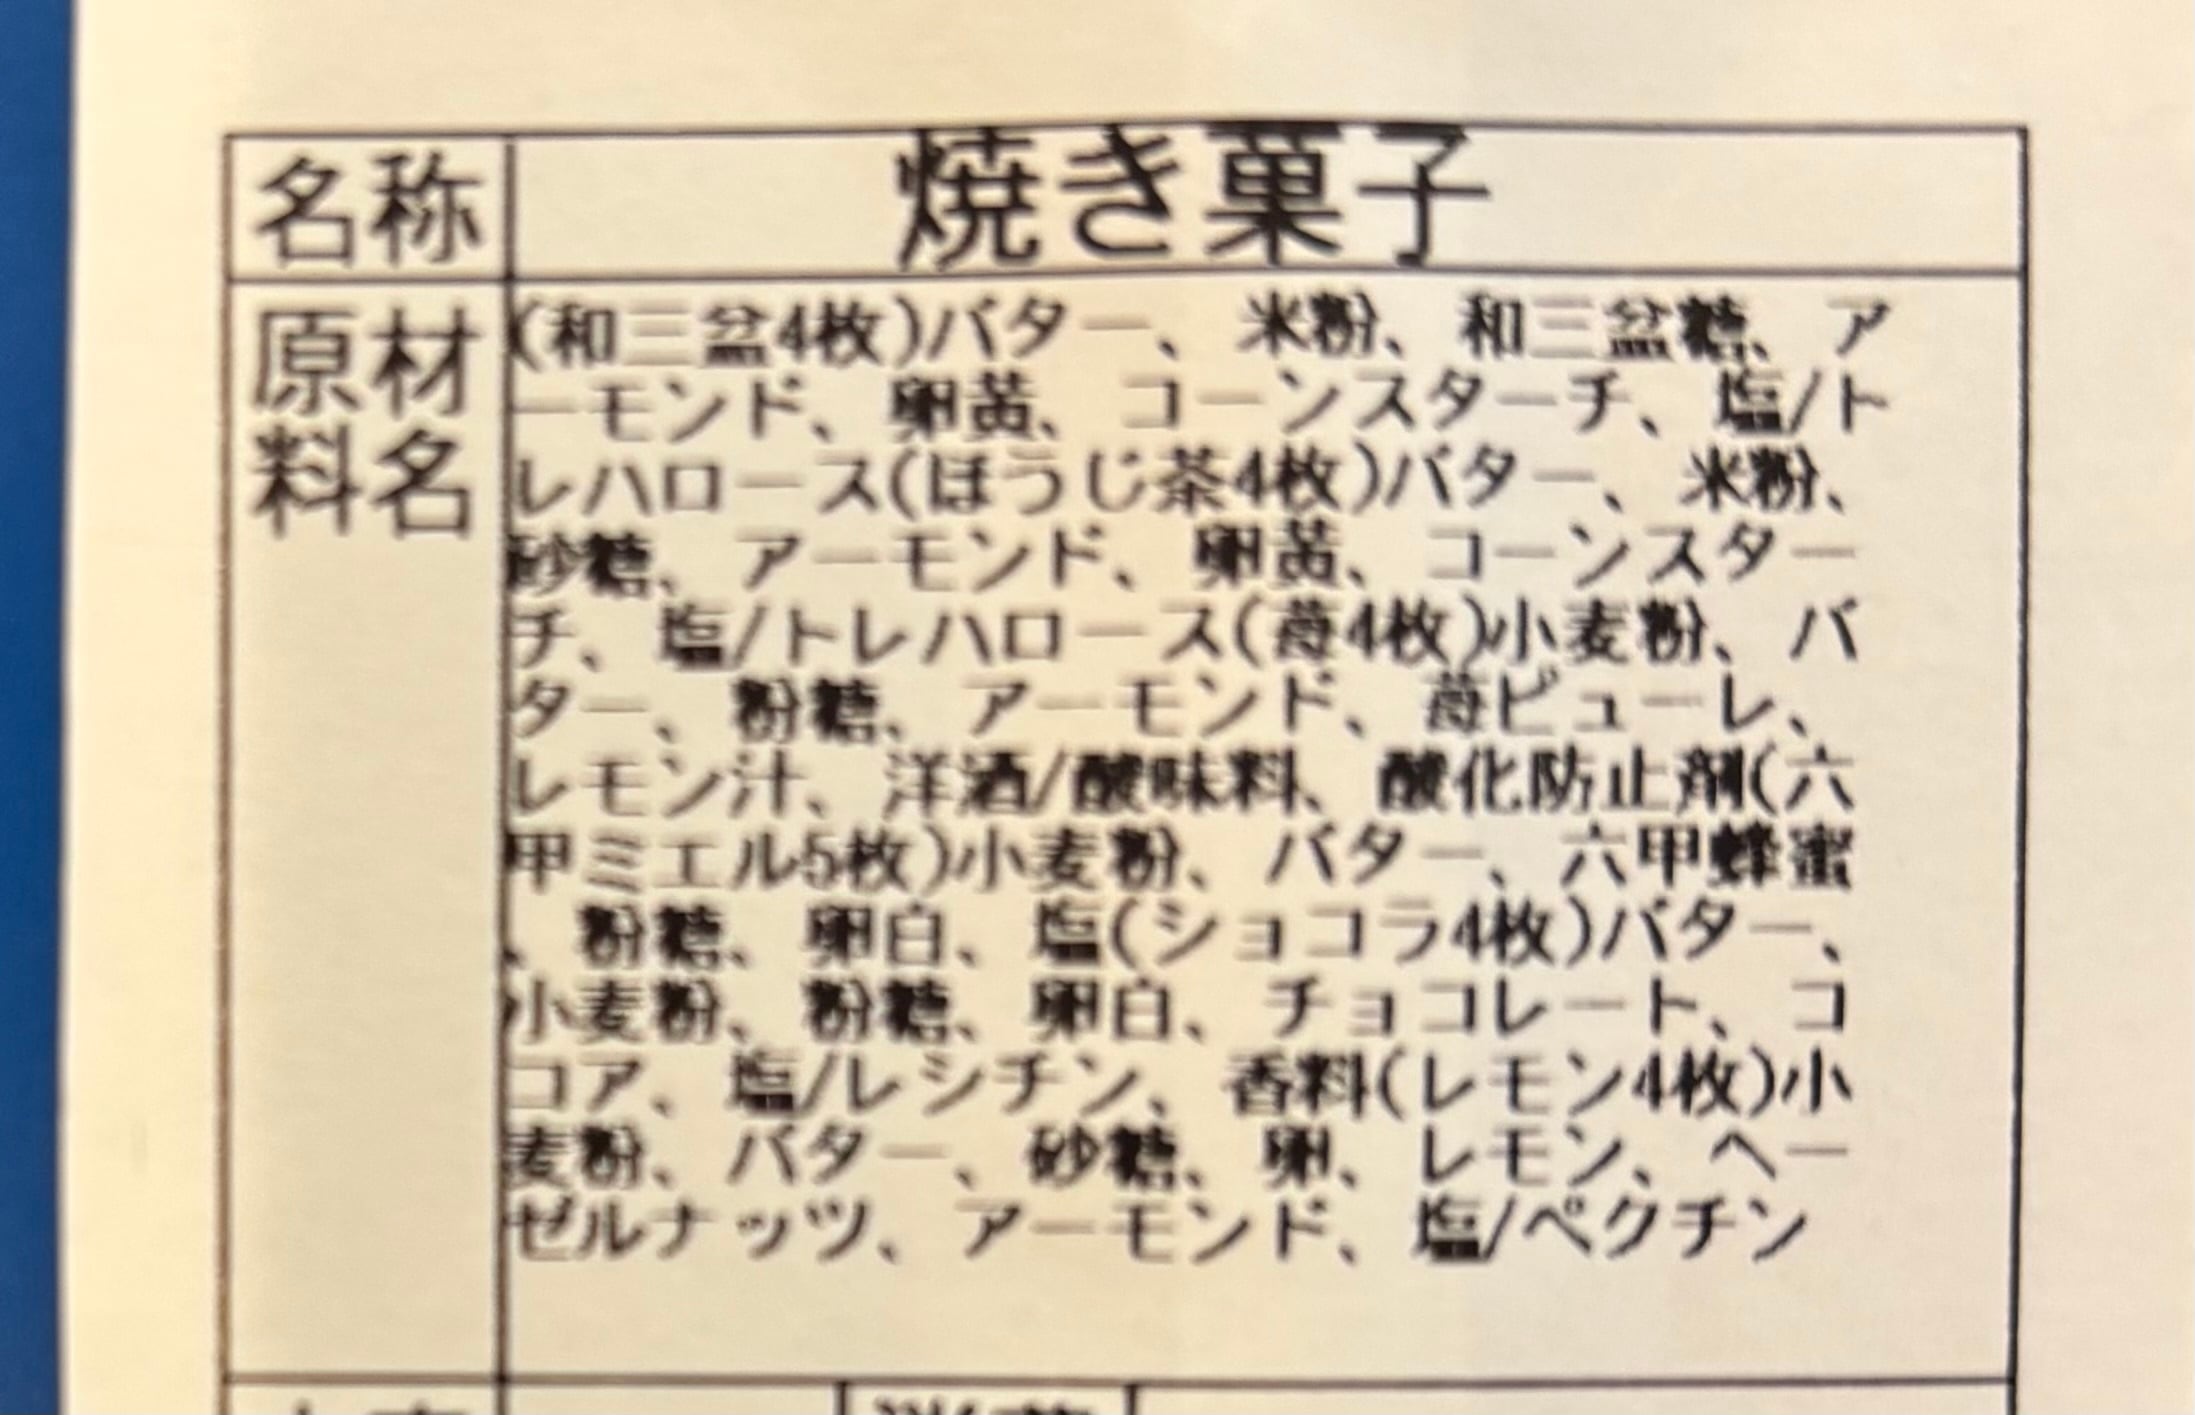 名称 焼き菓子
原材料名
(和三盆4枚)バター、米粉、和三盆糖、ア
ーモンド、卵黄、コーンスターチ、塩/ト
レハロース(ほうじ茶4枚)バター、米粉、
砂糖、アーモンド、卵黄、コーンスター
チ、塩/トレハロース(苺4枚)小麦粉、バ
ター、粉糖、アーモンド、苺ピューレ、
レモン汁、洋酒/酸味料、酸化防止剤(六
甲ミエル5枚)小麦粉、バター、六甲蜂蜜
、粉糖、卵白、塩(ショコラ4枚)バター、
小麦粉、粉糖、卵白、チョコレート、コ
コア、塩/レシチン、香料(レモン4枚)小
麦粉、バター、砂糖、卵、レモン、ヘー
ゼルナッツ、アーモンド、塩/ペクチン